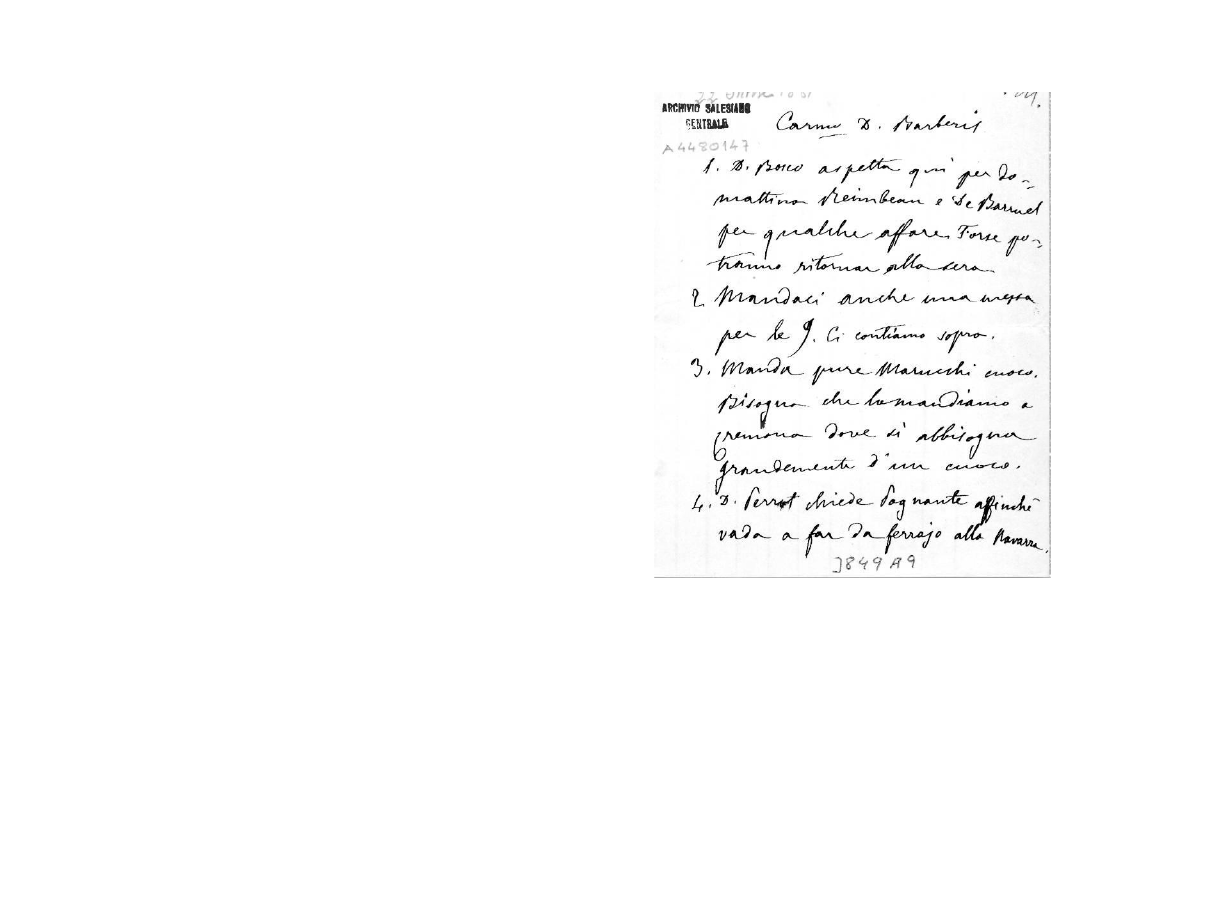 ARCHIVIO SALESIANO
CENTRALE
A4480147
Carmo D. Barberis
1. D. Bosco aspetta qui per do-
mattina Reimbeau e De Barruel
per qualche affare. Forse po-
tranno ritornar alla sera
2. Mandaci anche una messa
per le 9. Ci contiamo sopra.
3. Manda pure Marucchi cuoco.
Bisogna che lo mandiamo a
Cremona dove si abbisogna
grandemente d'un cuoco.
4. D. Perrot chiede Pagnante affinchè
vada a far da ferrajo alla Navarra.
3849 A9